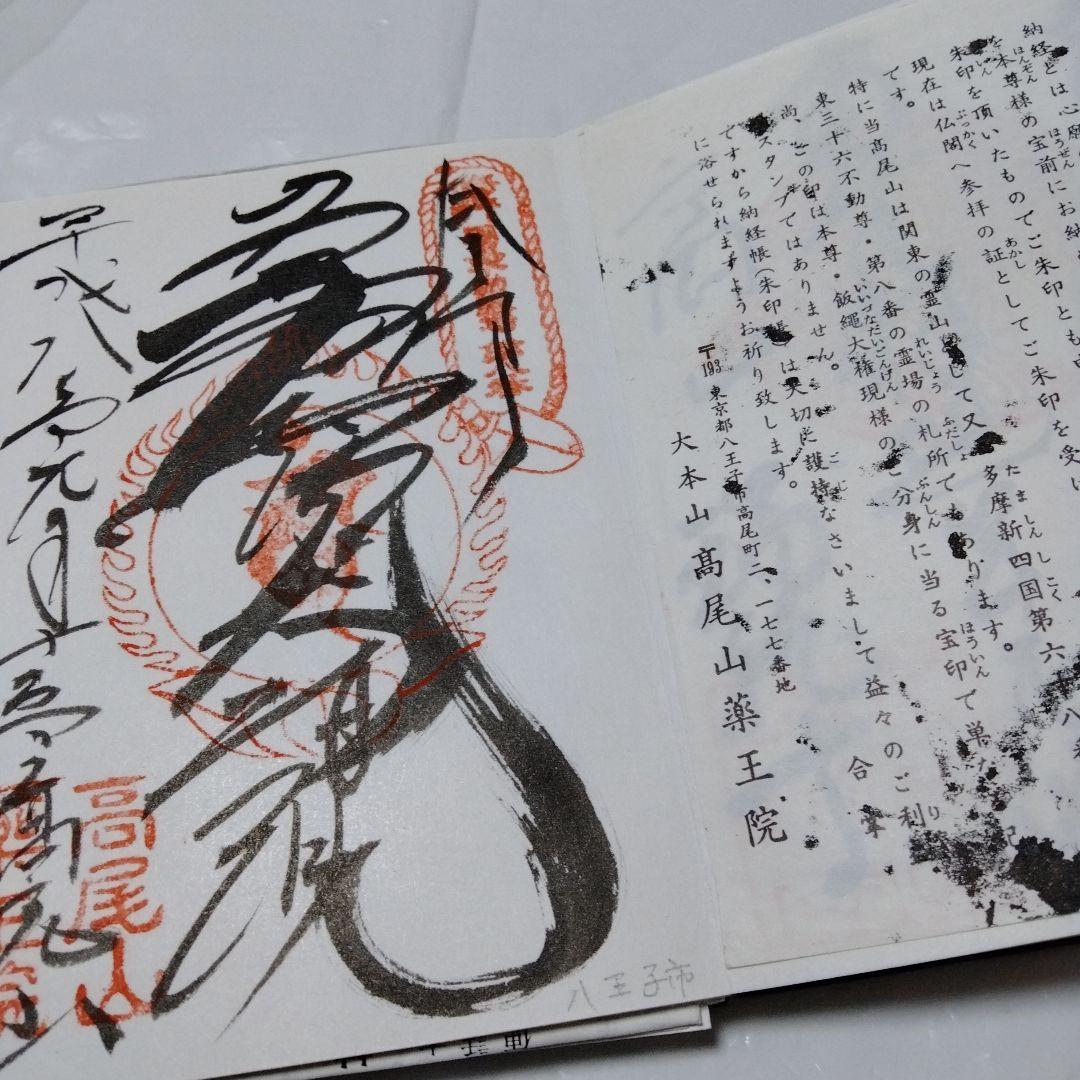 奉拝
飯縄大権現
平成八年元月十日
高尾山
高尾山
八王子市
納経とは心願
を本尊様の宝前にお納め
朱印を頂いたものでご朱印とも
現在は仏閣へ参拝の証としてご朱印を受け
です。
特に当高尾山は関東の霊山として又、多摩新四国第六十八番
東三十六不動尊・第八番の霊場の札所でもあります。
尚、この印は本尊・飯縄大権現様のご分身に当る宝印で単な
スタンプではありません。
ですから納経帳(朱印帳)は大切に護持なさいまして益々のご利
に浴せられますようお祈り致します。
合掌
〒193 東京都八王子市高尾町二、一七七番地
大本山高尾山薬王院